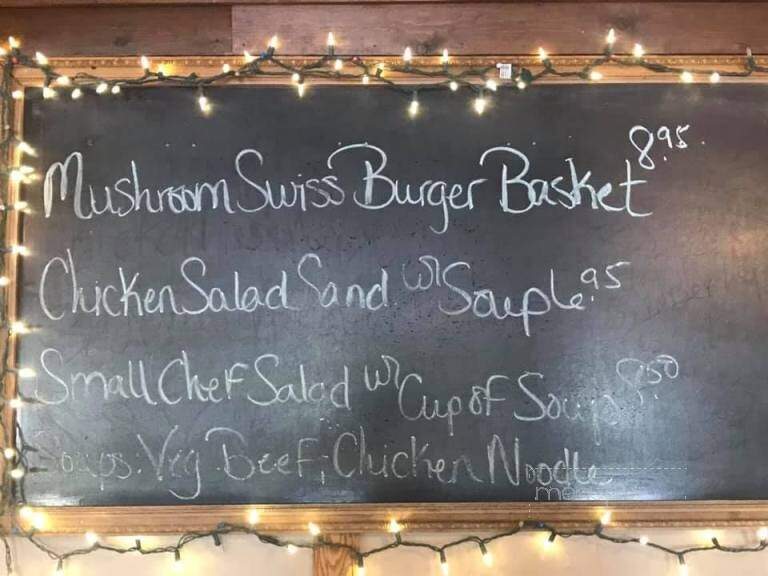 Mushroom Swiss Burger Basket 8.95
Chicken Salad Sand w/ Soup 6.95
Small Chef Salad w/ Cup of Soup 8.50
Soups: Veg Beef, Chicken Noodle